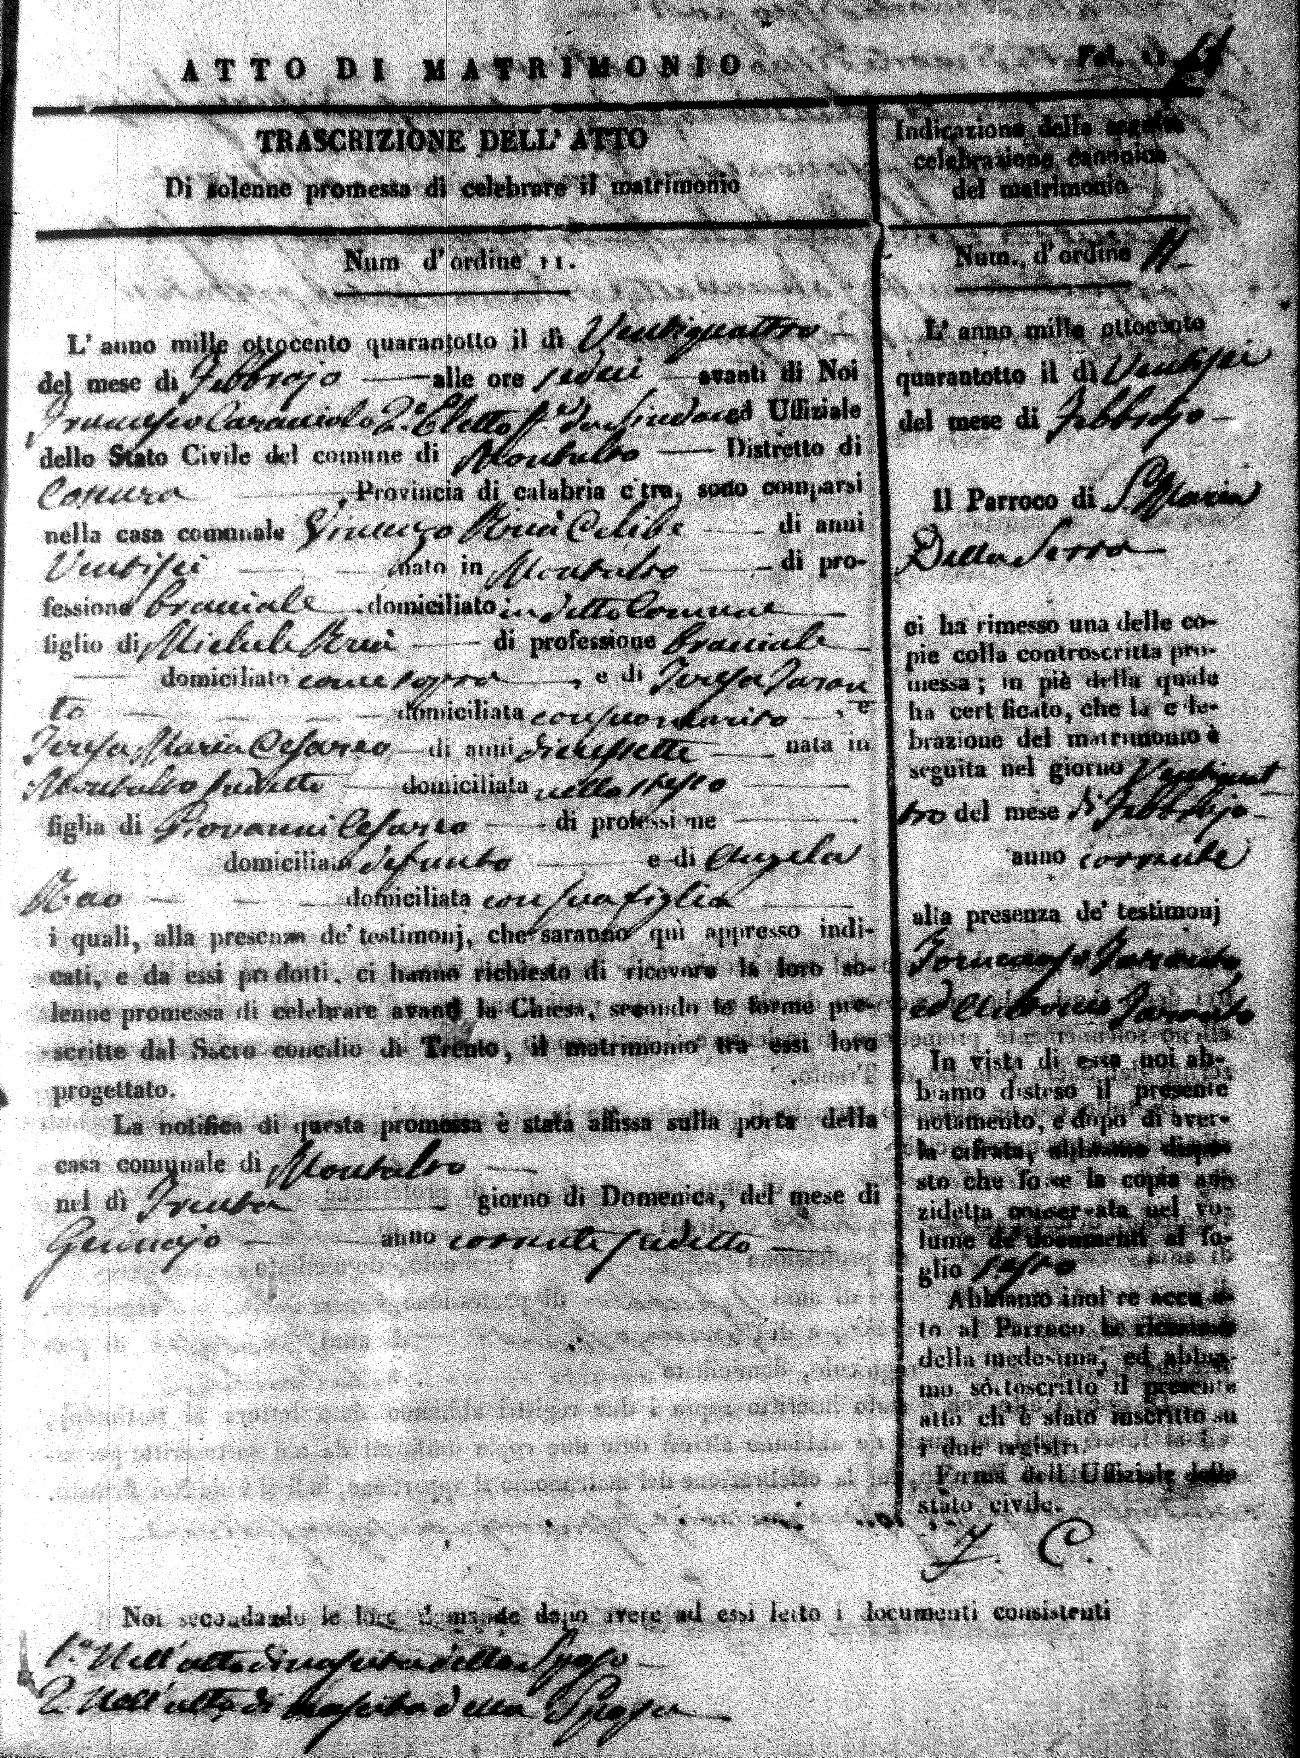 ATTO DI MATRIMONIO
Fol. 11
TRASCRIZIONE DELL' ATTO
Di solenne promessa di celebrare il matrimonio
Num d'ordine 11.
L' anno mille ottocento quarantotto il dì Ventiquattro
del mese di Febbrajo alle ore sedeci avanti di Noi
Francesco Caracciolo 2.° Eletto ed Uffiziale
dello Stato Civile del comune di Montalto Distretto di
Cosenza, Provincia di calabria citra, sono comparsi
nella casa comunale Vincenzo Celibe di anni
Ventisei nato in Montalto di pro-
fessione bracciale domiciliato in detto Comune
figlio di Michele di professione bracciale
domiciliato come sopra, e di Teresa Taran
to domiciliata con suo marito, e
Teresa Maria Cesareo di anni diecessette nata in
Montalto sudetto domiciliata nello stesso
figlia di Giovanni Cesareo di professione
domiciliato defunto e di Angela
domiciliata con sua figlia
i quali, alla presenza de' testimonj, che saranno qui appresso indi-
cati, e da essi prodotti, ci hanno richiesto di ricevere la loro so-
lenne promessa di celebrare avanti la Chiesa, secondo le forme pre-
scritte dal Sacro concilio di Trento, il matrimonio tra essi loro
progettato.
La notifica di questa promessa è stata affissa sulla porta della
casa comunale di Montalto
nel dì Trenta giorno di Domenica, del mese di
Gennajo anno corrente sudetto
Indicazione della seguita
celebrazione canonica
del matrimonio
Num. d'ordine 11
L' anno mille ottocento
quarantotto il dì Ventisei
del mese di Febbrajo
Il Parroco di S. Maria
Della Serra
ci ha rimesso una delle co-
pie colla controscritta pro-
messa; in piè della quale
ha certificato, che la cele-
brazione del matrimonio è
seguita nel giorno Ventiquat
tro del mese di Febbrajo
anno corrente
alla presenza de' testimonj
Tommaso Taranto
ed Antonio Taranto
In vista di essa noi ab-
biamo disteso il presente
notamento, e dopo di aver-
la cifrata, abbiamo dispo-
sto che fosse la copia anzi
zidetta conservata nel vo-
lume de' documenti al fo-
glio sesto
Abbiamo inoltre accusa-
to al Parroco la ricezione
della medesima, ed abbia-
mo sottoscritto il presente
atto ch' è stato inscritto su
i due registri.
Firma dell' Uffiziale dello
stato civile.
F. C.
Noi secondando le loro domande dopo avere ad essi letto i documenti consistenti
1.° Nell'atto di nascita dello Sposo
2. Nell'atto di nascita della Sposa